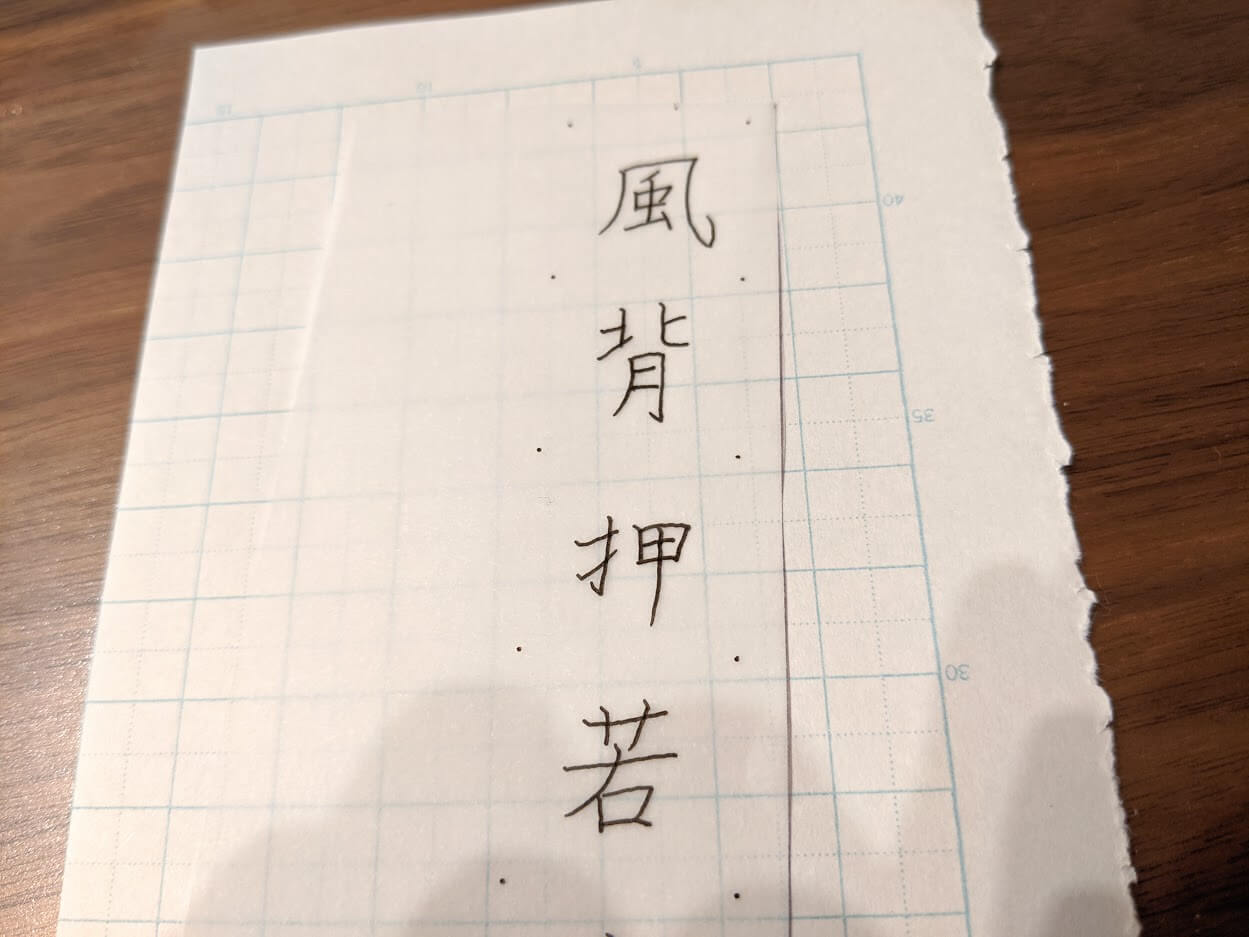 風背押若
15
10
5
40
35
30